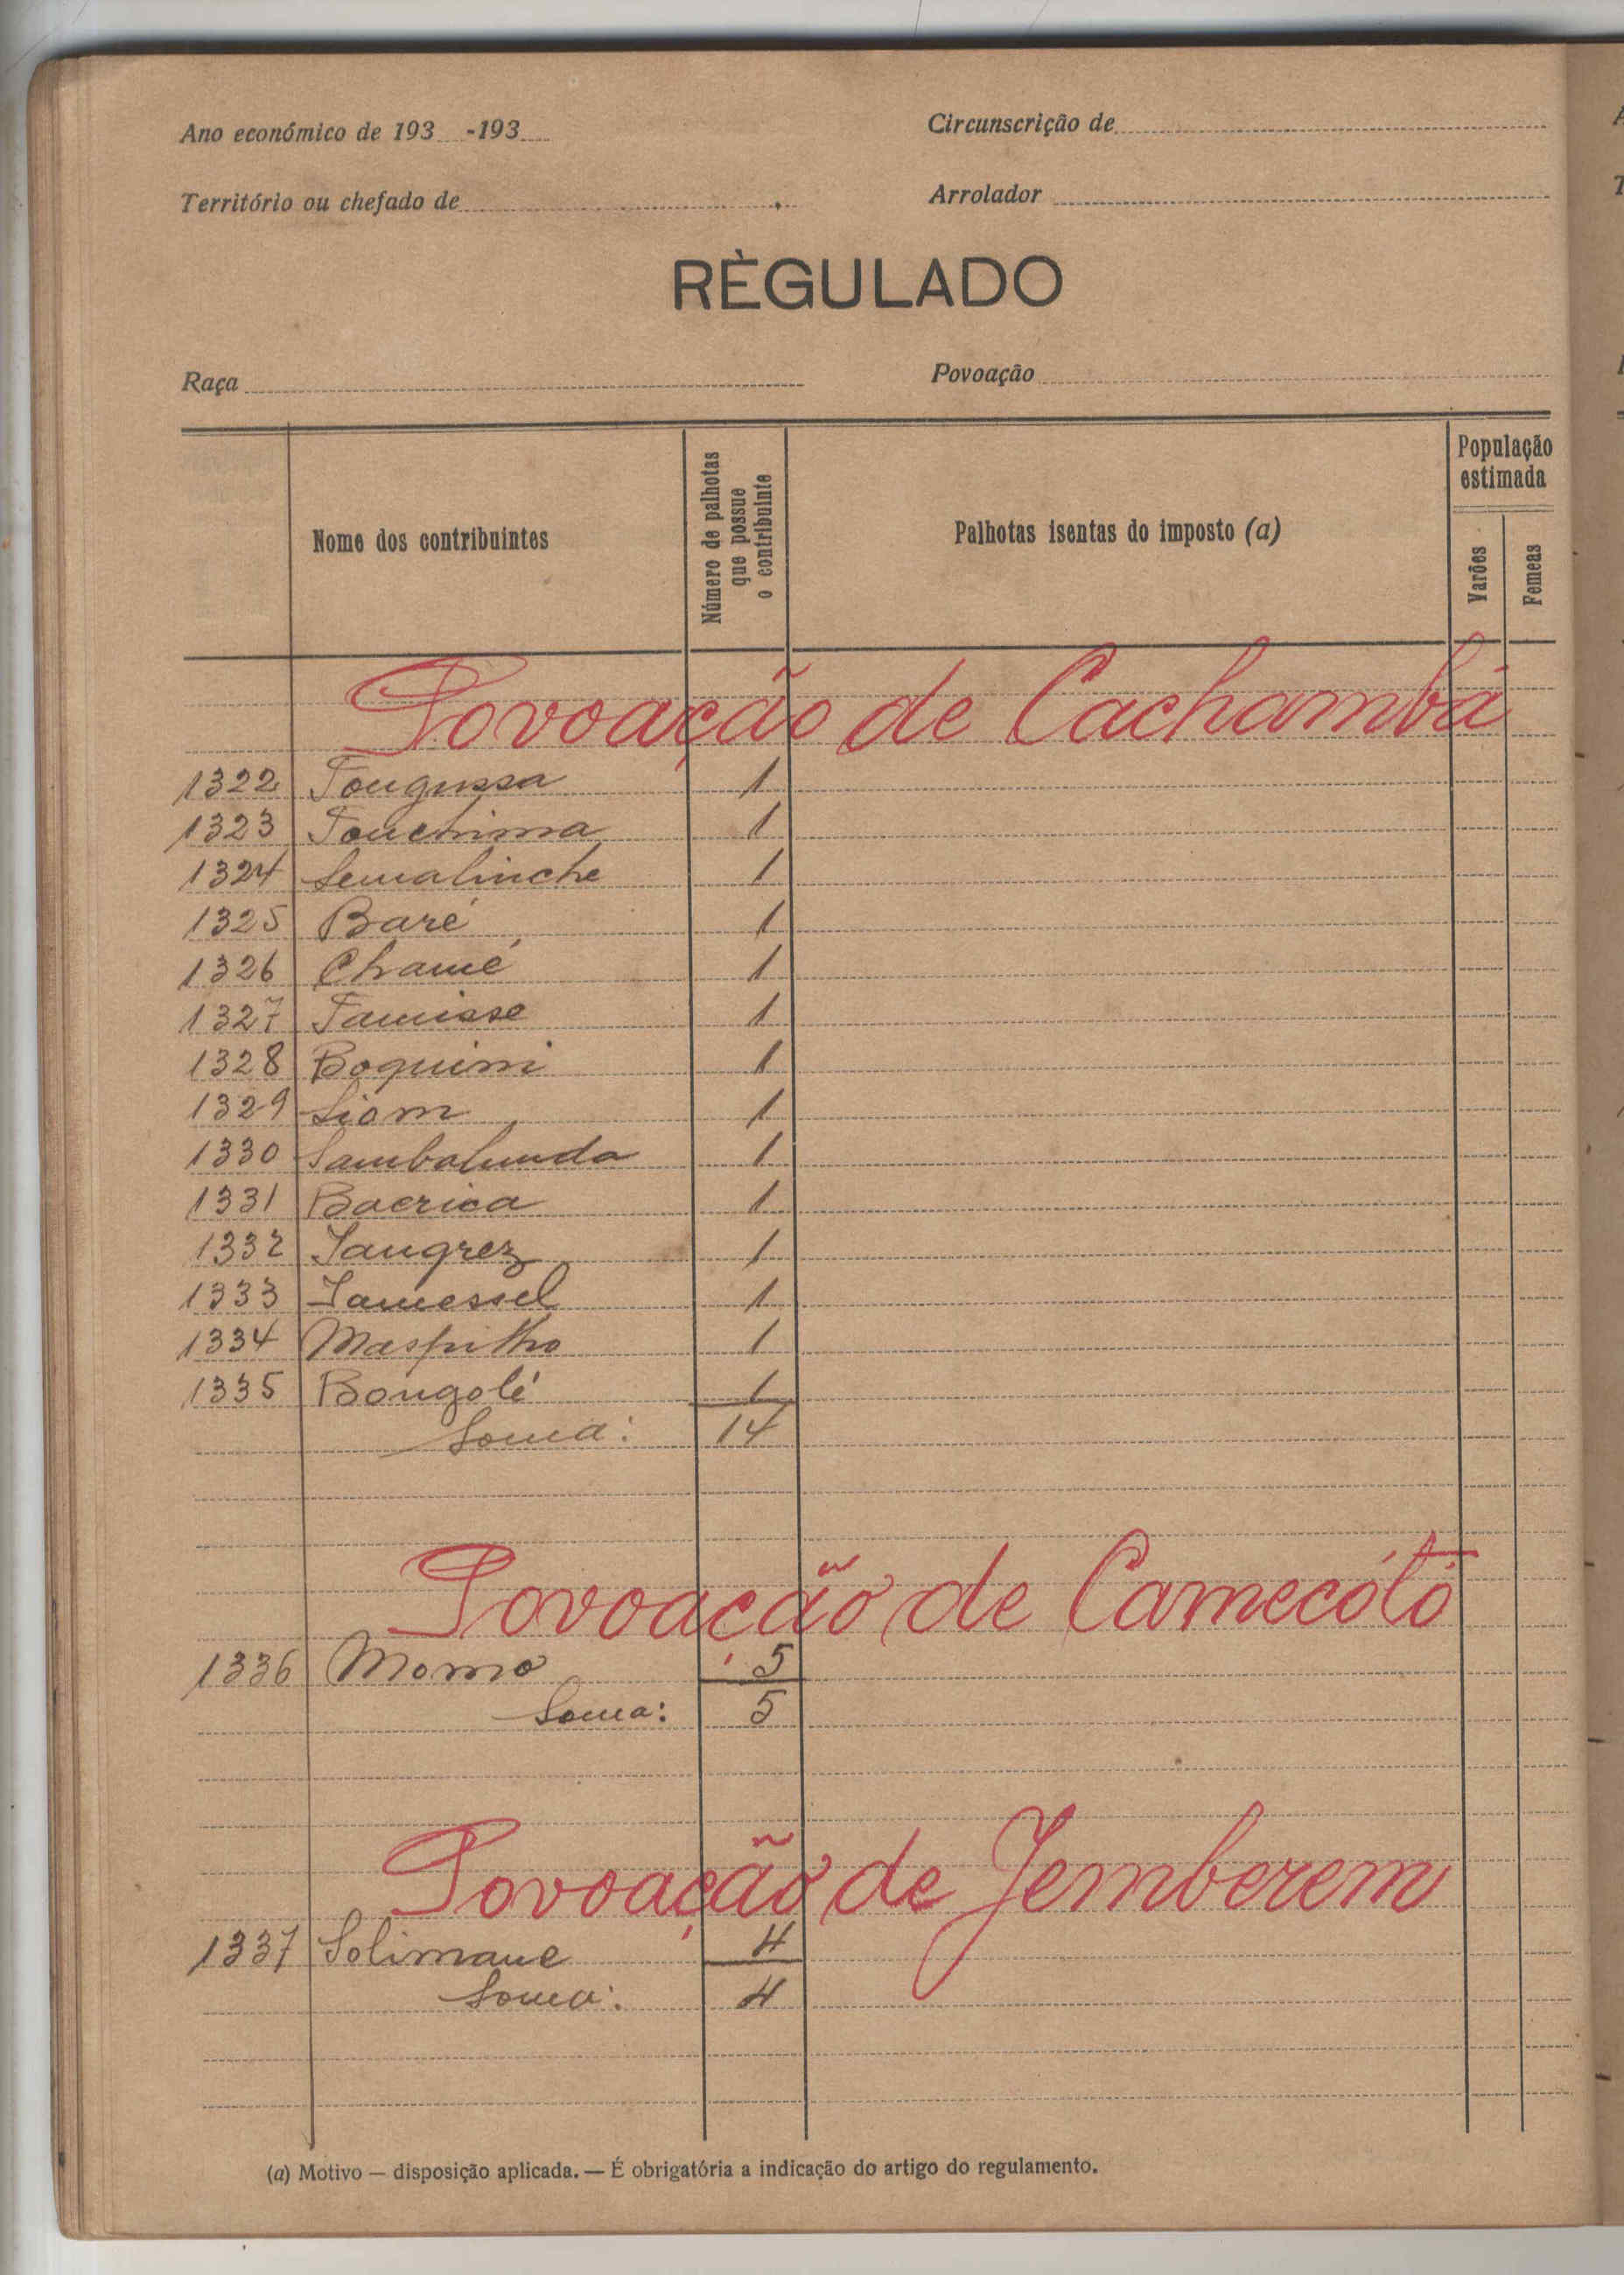 Ano económico de 193 -193
Circunscrição de
Território ou chefado de
Arrolador
RÈGULADO
Raça
Povoação
Nome dos contribuintes
Número de palhotas que possue o contribuinte
Palhotas isentas do imposto (a)
População estimada
Varões
Femeas
Povoação de Cachambá
1322 Tongussa 1
1323 Tonchima 1
1324 Semalinche 1
1325 Baré 1
1326 Chamé 1
1327 Tamisse 1
1328 Boquimi 1
1329 Siom 1
1330 Sambalunda 1
1331 Bacrica 1
1332 Iangrez 1
1333 Iamessel 1
1334 1
1335 Bongolé 1
Soma: 14
Povoação de Camecótó
1336 Momo 5
Soma: 5
Povoação de Jemberem
1337 Solimane 4
Soma: 4
(a) Motivo — disposição aplicada. — É obrigatória a indicação do artigo do regulamento.